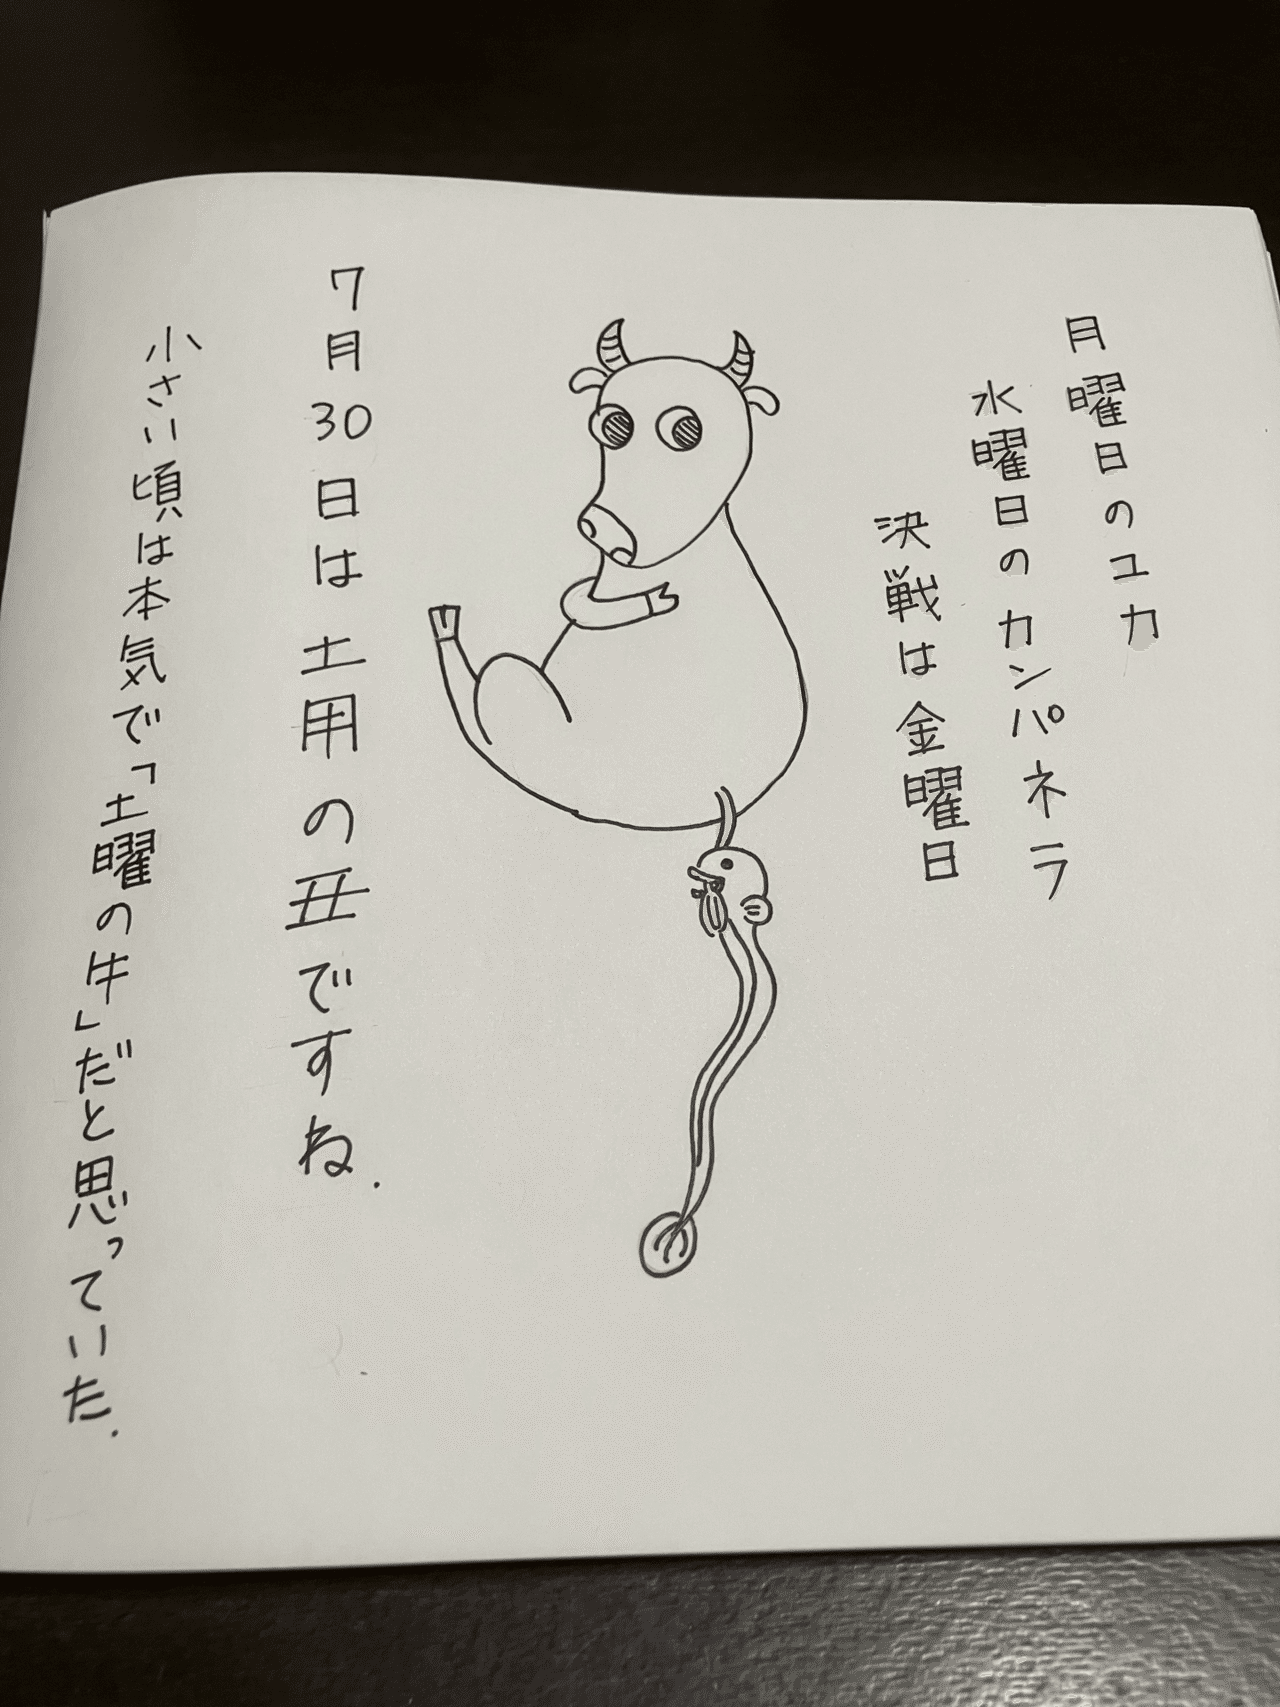 月曜日のユカ
水曜日のカンパネラ
決戦は金曜日
7月30日は土用の丑ですね.
小さい頃は本気で「土曜の牛」だと思っていた.